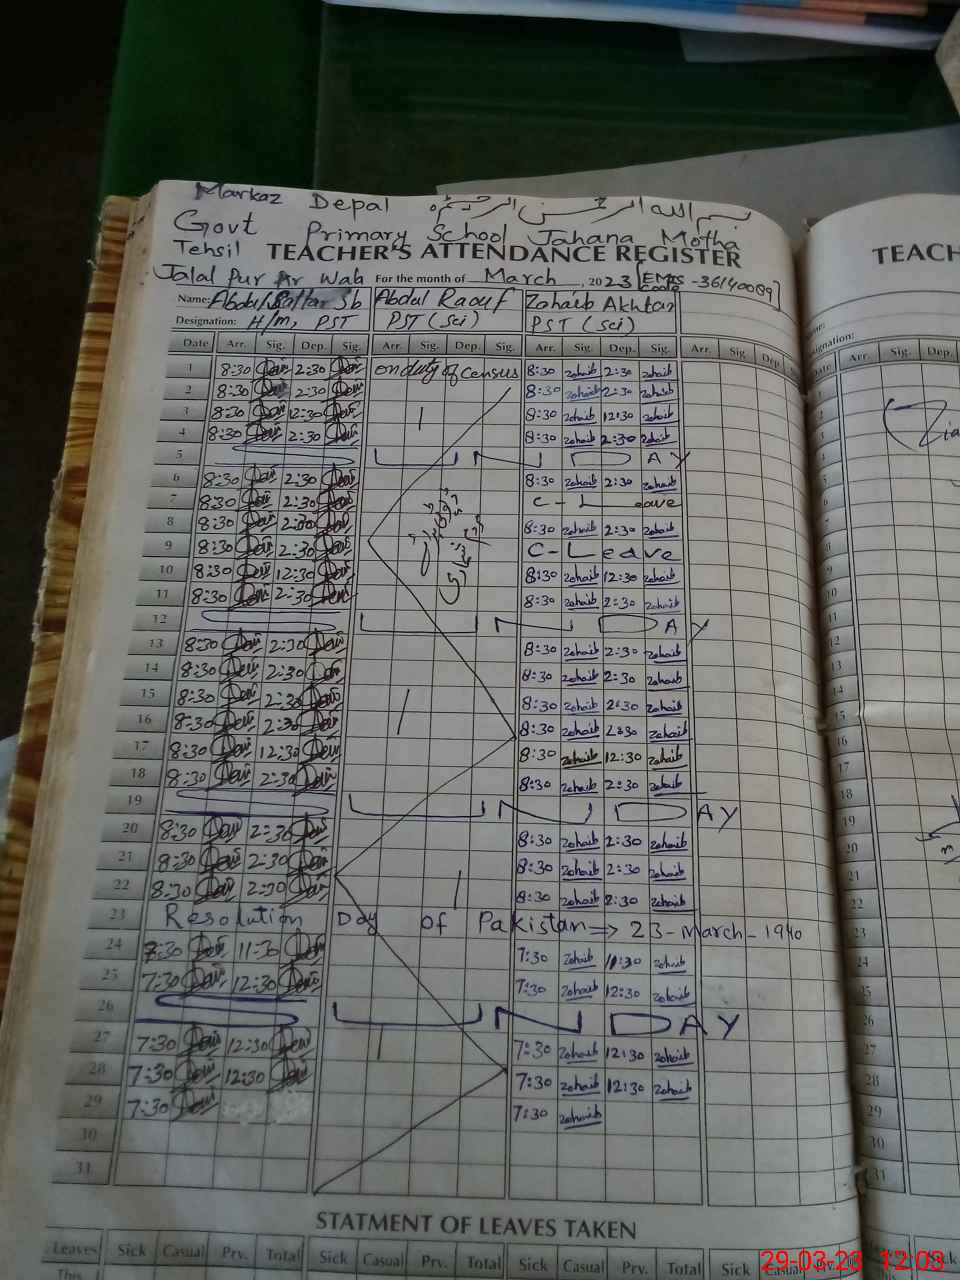 Markaz Depal بسم الله الرحمن الرحيم
Govt Primary School Jahana Motha
Tehsil TEACHER'S ATTENDANCE REGISTER
Jalal Pur Ar Wah For the month of March, 2023 [EMIS Code -36140089]
Name: Abdul Sattar Sb Abdul Raouf Zohaib Akhtar
Designation: H/m, PST PST (Sci) PST (Sci)
Date Arr. Sig. Dep. Sig. Arr. Sig. Dep. Sig. Arr. Sig. Dep. Sig. Arr. Sig. Dep
1 8:30 2:30 on duty of census 8:30 zohaib 2:30 zohaib
2 8:30 2:30 8:30 zohaib 2:30 zohaib
3 8:30 12:30 8:30 zohaib 12:30 zohaib
4 8:30 2:30 8:30 zohaib 2:30 zohaib
5 S U N D A Y
6 8:30 2:30 8:30 zohaib 2:30 zohaib
7 8:30 2:30 C - L eave
8 8:30 2:30 8:30 zohaib 2:30 zohaib
9 8:30 2:30 C - L eave
10 8:30 12:30 8:30 zohaib 12:30 zohaib
11 8:30 2:30 8:30 zohaib 2:30 zohaib
12 S U N D A Y
13 8:30 2:30 8:30 zohaib 2:30 zohaib
14 8:30 2:30 8:30 zohaib 2:30 zohaib
15 8:30 2:30 8:30 zohaib 2:30 zohaib
16 8:30 2:30 8:30 zohaib 2:30 zohaib
17 8:30 12:30 8:30 zohaib 12:30 zohaib
18 8:30 2:30 8:30 zohaib 2:30 zohaib
19 S U N D A Y
20 8:30 2:30 8:30 zohaib 2:30 zohaib
21 8:30 2:30 8:30 zohaib 2:30 zohaib
22 8:30 2:30 8:30 zohaib 2:30 zohaib
23 Resolution Day of Pakistan => 23-March-1940
24 7:30 11:30 7:30 zohaib 11:30 zohaib
25 7:30 12:30 7:30 zohaib 12:30 zohaib
26 S U N D A Y
27 7:30 12:30 7:30 zohaib 12:30 zohaib
28 7:30 12:30 7:30 zohaib 12:30 zohaib
29 7:30 7:30 zohaib
30
31
STATMENT OF LEAVES TAKEN
Leaves Sick Casual Prv. Total Sick Casual Prv. Total Sick Casual Prv. Total Sick Casual Prv.
This
TEACH
Designation:
Date Arr. Sig. Dep.
29-03-23 12:03